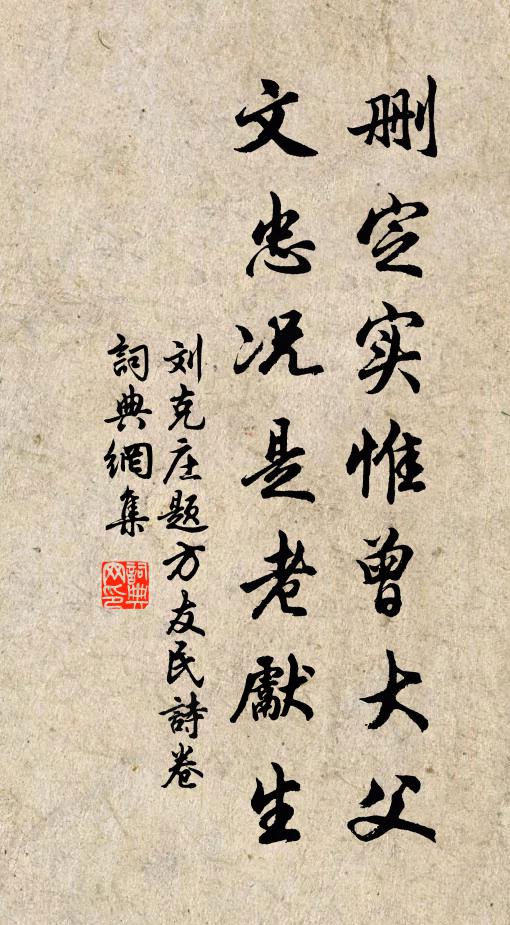 删定实惟曾大父
文忠况是老獻生
刘克庄题方友民詩卷
詞典網集
詞典网印